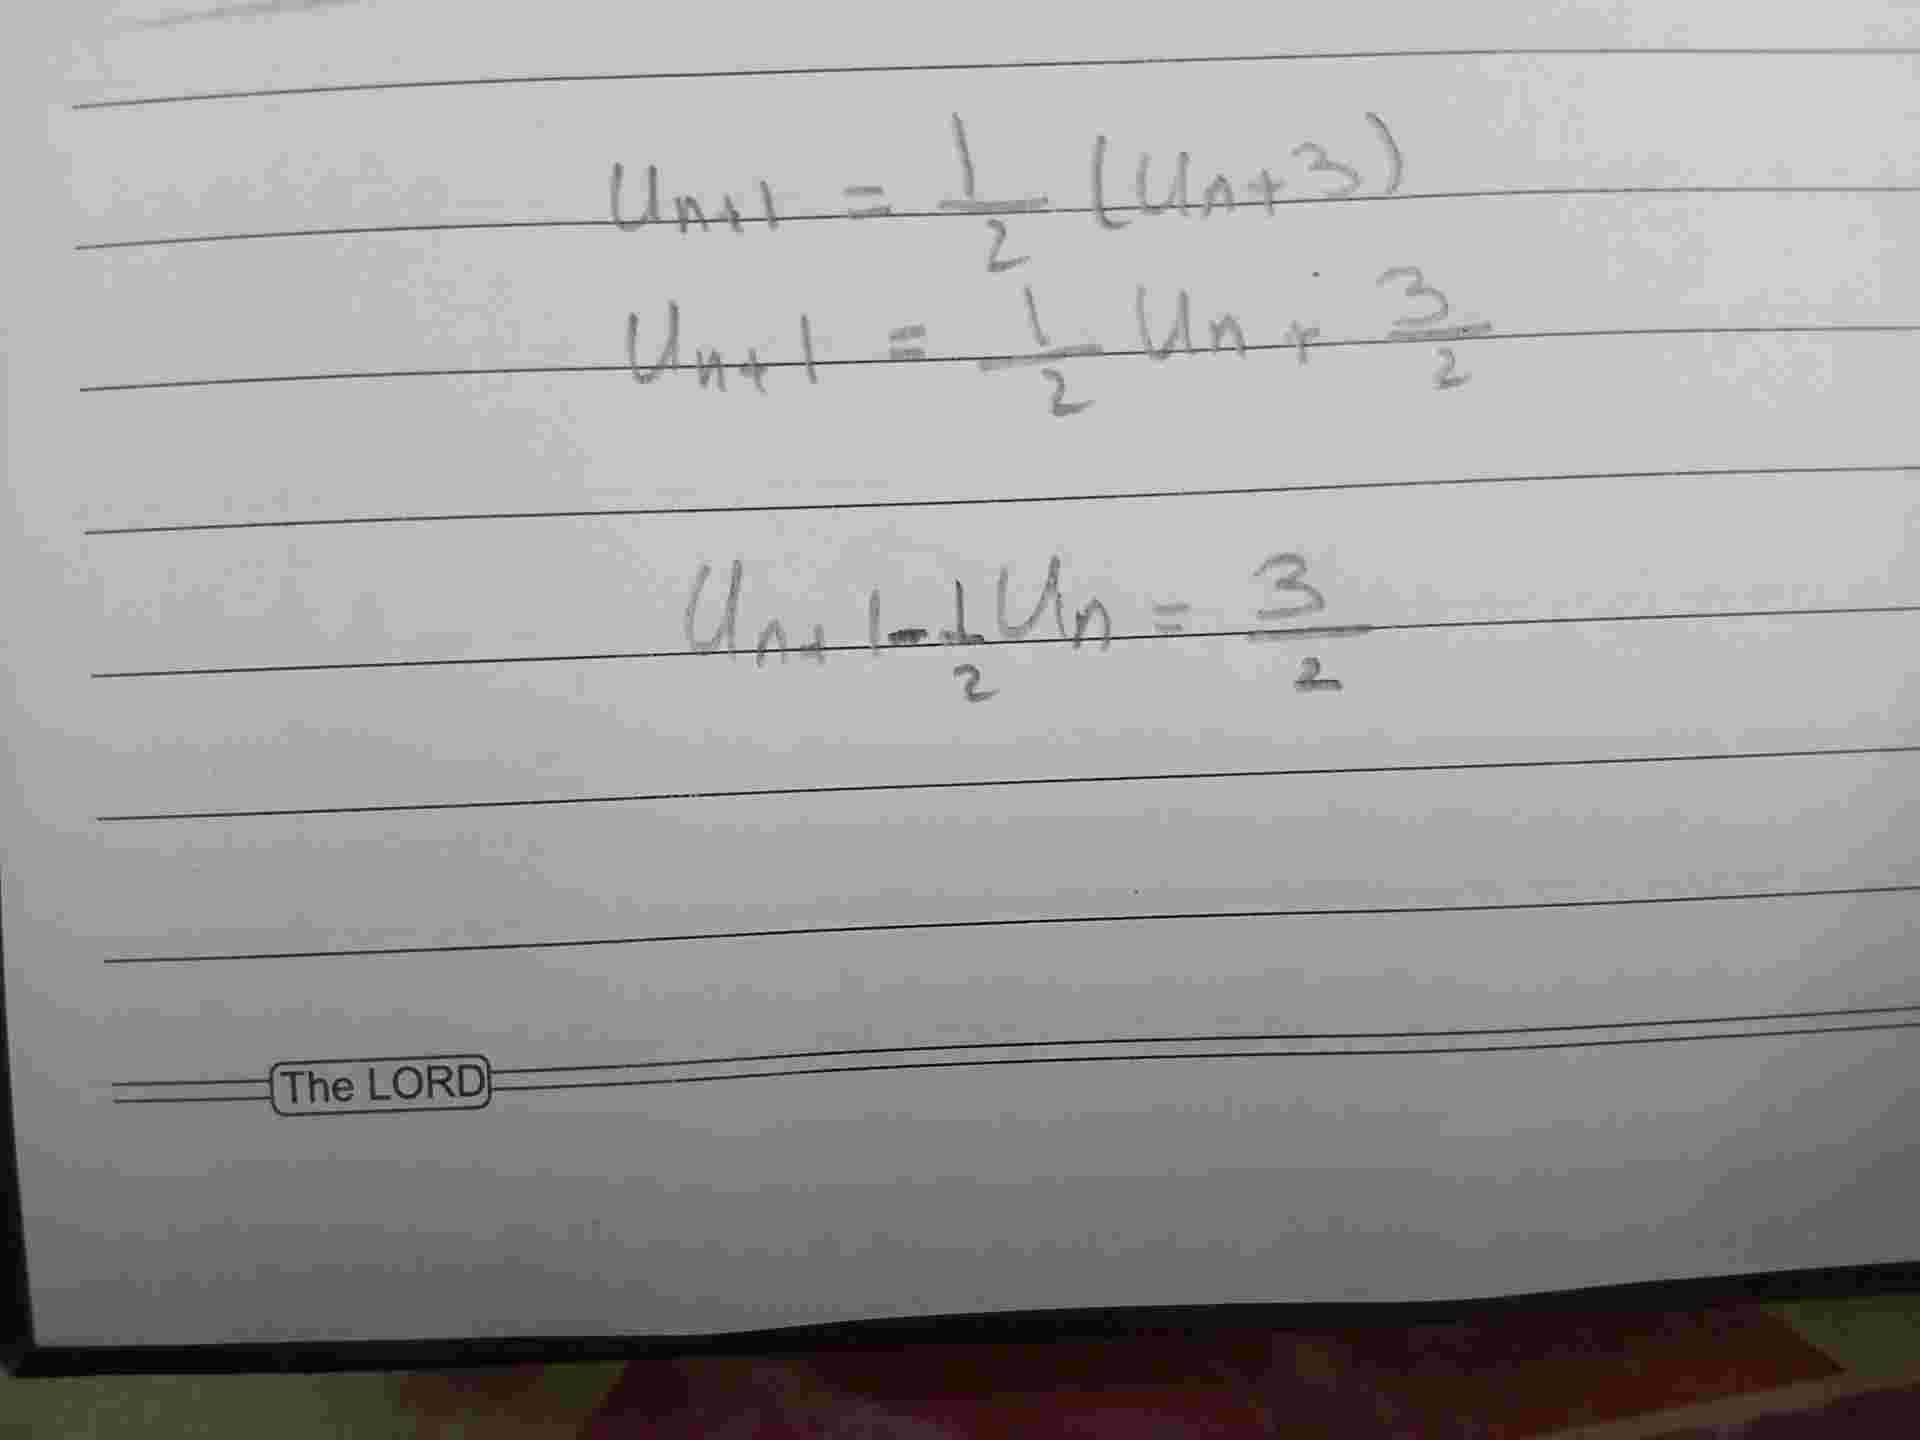 Un+1 = 1/2 (Un+3)
Un+1 = 1/2 Un + 3/2
Un+1 - 1/2 Un = 3/2
The LORD